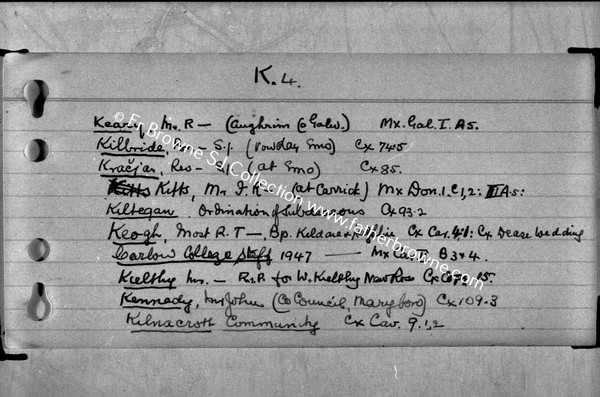 K.4.
Keary, Mr. R — (Aughrim Co Galw.) Mx. Gal. I. A5.
Kilbride, — S.J. (Vowday Emo) Cx 74.5
Kračjar, Rev — (at Emo) Cx 85.
Kitts Kitts, Mr J. K — (at Carrick) Mx Don. 1. C1,2: III A.5:
Kiltegan. Ordination of Subdeacons Cx 93.2
Keogh, Most R. T — Bp. Kildare & Cx Car. 4.1: Cx Dease Wedding
Carlow College Staff 1947 — Mx Car I B3+4.
Kielthy Mrs. — R.P. for W. Kielthy New Ross Cx
Kennedy, Mr John (Co Council, Maryboro) Cx 109.3
Kilnacrott Community Cx Cav. 9.1,2
© Fr Browne SJ Collection www.fatherbrowne.com